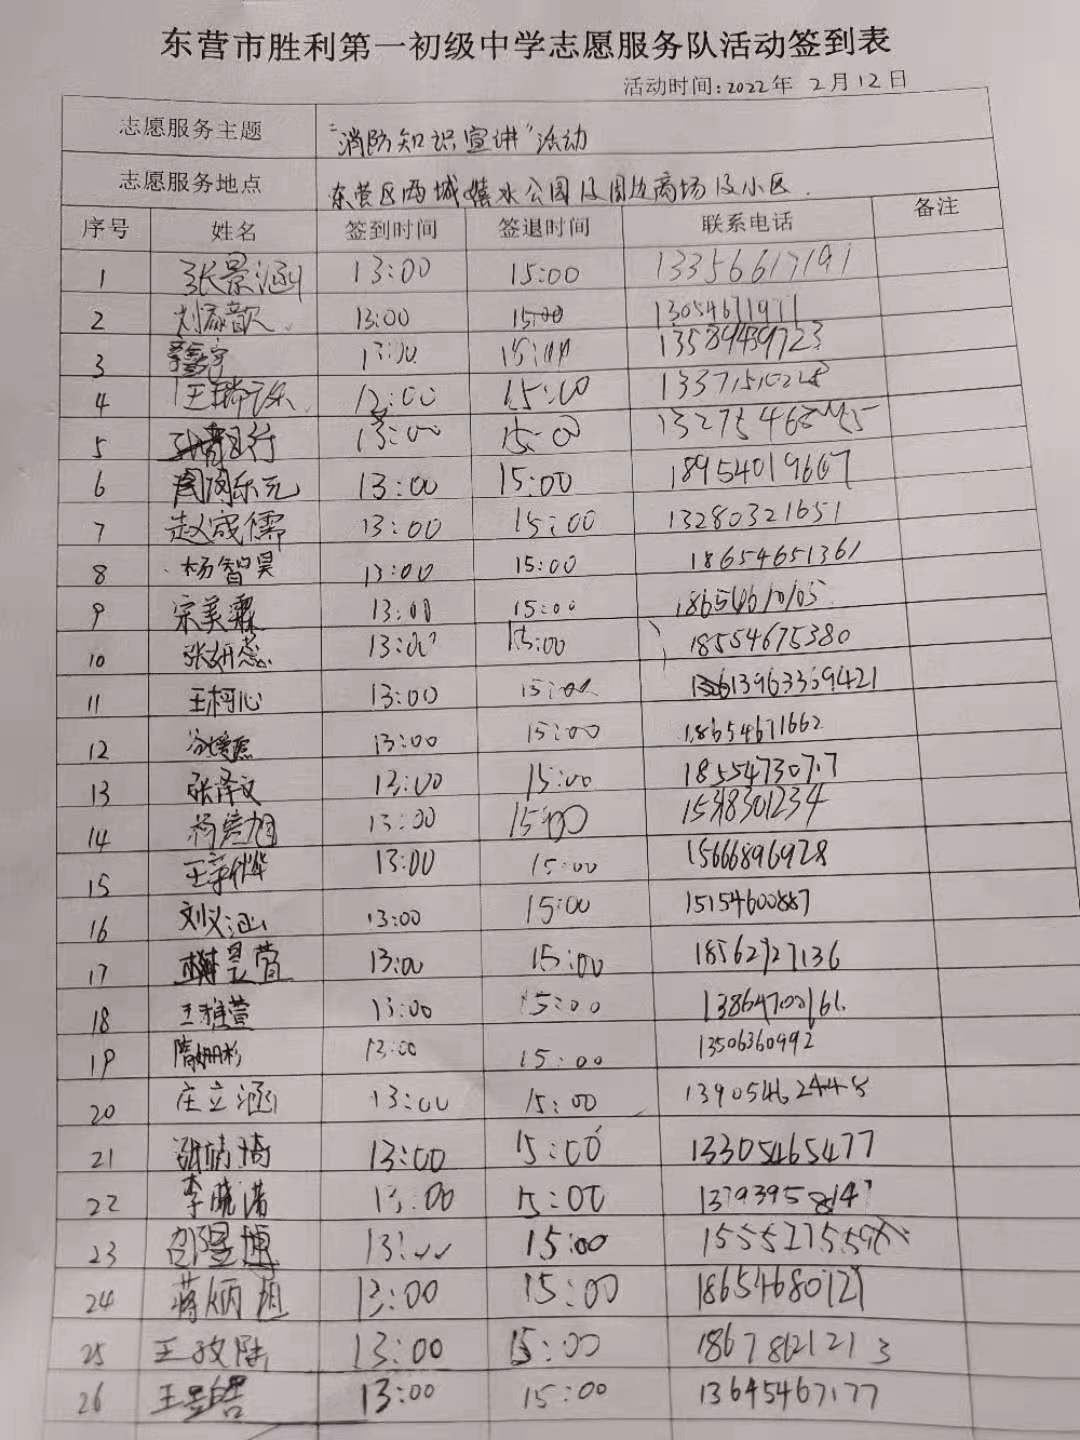 东营市胜利第一初级中学志愿服务队活动签到表
活动时间:2022年 2月12日
志愿服务主题 “消防知识宣讲”活动
志愿服务地点 东营区西城嬉水公园及周边商场及小区.
序号 姓名 签到时间 签退时间 联系电话 备注
1 张景涵 13:00 15:00 13356617191
2 13:00 15:00 13054671971
3 13:00 15:00 13589439723
4 15:00
5 13:00 15:00
6 13:00 15:00 18954019667
7 赵成儒 13:00 15:00 13280321651
8 杨智昊 13:00 15:00 18654651361
9 宗美霖 13:00 15:00
10 张妍蕊 13:00 15:00 18554675380
11 王柯心 13:00 15:00 13963359421
12 13:00 15:00 18654671662
13 张泽文 13:00 15:00 18554730717
14 13:00 15:00
15 13:00 15:00 15666896928
16 刘义涵 13:00 15:00 15154600887
17 13:00 15:00 18562127136
18 王雅萱 13:00 15:00
19 隋姗杉 13:00 15:00 13506360992
20 庄立涵 13:00 15:00 13905462448
21 13:00 15:00 13305465477
22 李晓诺 13:00 15:00
23 15:00
24 蒋炳旭 13:00 15:00 18654680121
25 13:00 15:00 18678621213
26 王昱皓 13:00 15:00 13645467177